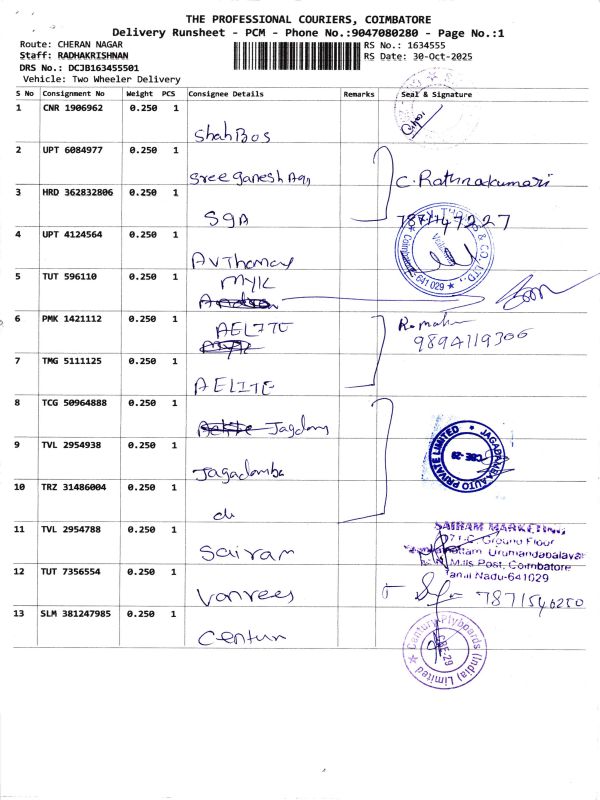 THE PROFESSIONAL COURIERS, COIMBATORE
Delivery Runsheet - PCM - Phone No.:9047080280 - Page No.:1
Route: CHERAN NAGAR
RS No.: 1634555
Staff: RADHAKRISHNAN
RS Date: 30-Oct-2025
DRS No.: DCJB163455501
Vehicle: Two Wheeler Delivery
S No Consignment No Weight PCS Consignee Details Remarks Seal & Signature
1 CNR 1906962 0.250 1 Shah Bos
2 UPT 6084977 0.250 1 Sree Ganesh Agn C. Rathnakumari
3 HRD 362832806 0.250 1 SGA 7871147227
4 UPT 4124564 0.250 1 AVThomay
5 TUT 596110 0.250 1 MYK
6 PMK 1421112 0.250 1 AELITE
9894119306
7 TMG 5111125 0.250 1 AELITE
8 TCG 50964888 0.250 1 Jagdam
9 TVL 2954938 0.250 1 Jagadamba
JAGADAMBA AUTO PRIVATE LIMITED
CBE-29
10 TRZ 31486004 0.250 1 do
11 TVL 2954788 0.250 1 Sairam
SAIRAM MARKETING
Ground Floor
Urumandapalayam
Mills Post, Coimbatore
Tamil Nadu-641029
12 TUT 7356554 0.250 1 Vanrees 7871546250
13 SLM 381247985 0.250 1 Centur
Century Plyboards (India) Limited
CBE-29